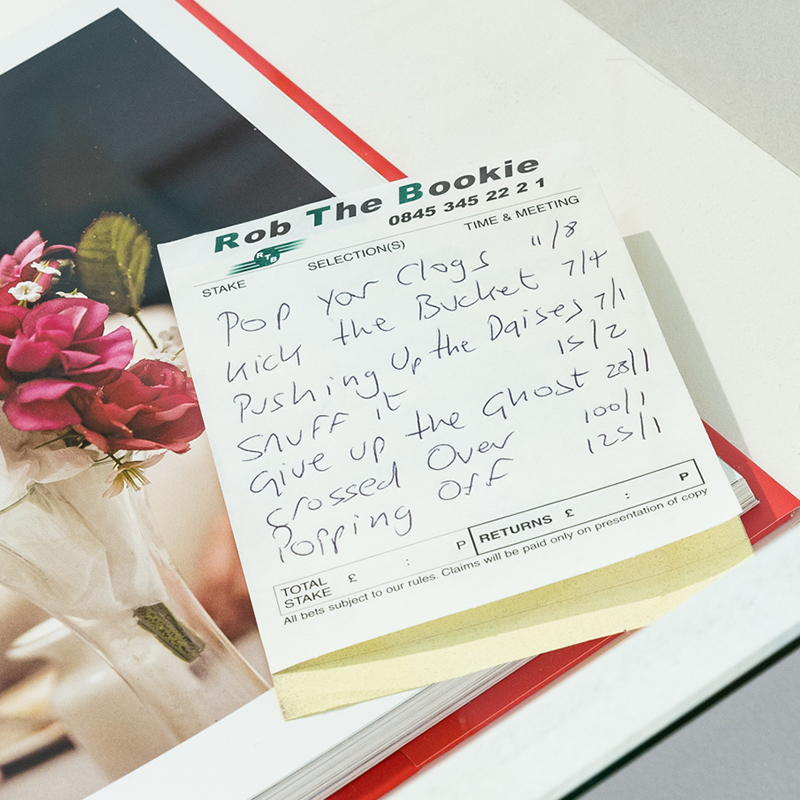 Rob The Bookie
0845 345 22 2 1
RTB
STAKE SELECTION(S) TIME & MEETING
Pop yor Clogs 11/8
Kick the Bucket 7/4
Pushing Up the Daises 7/1
Snuff it 15/2
Give up the Ghost 28/1
Crossed Over 100/1
Popping Off 125/1
TOTAL STAKE £ : P RETURNS £ : P
All bets subject to our rules. Claims will be paid only on presentation of copy